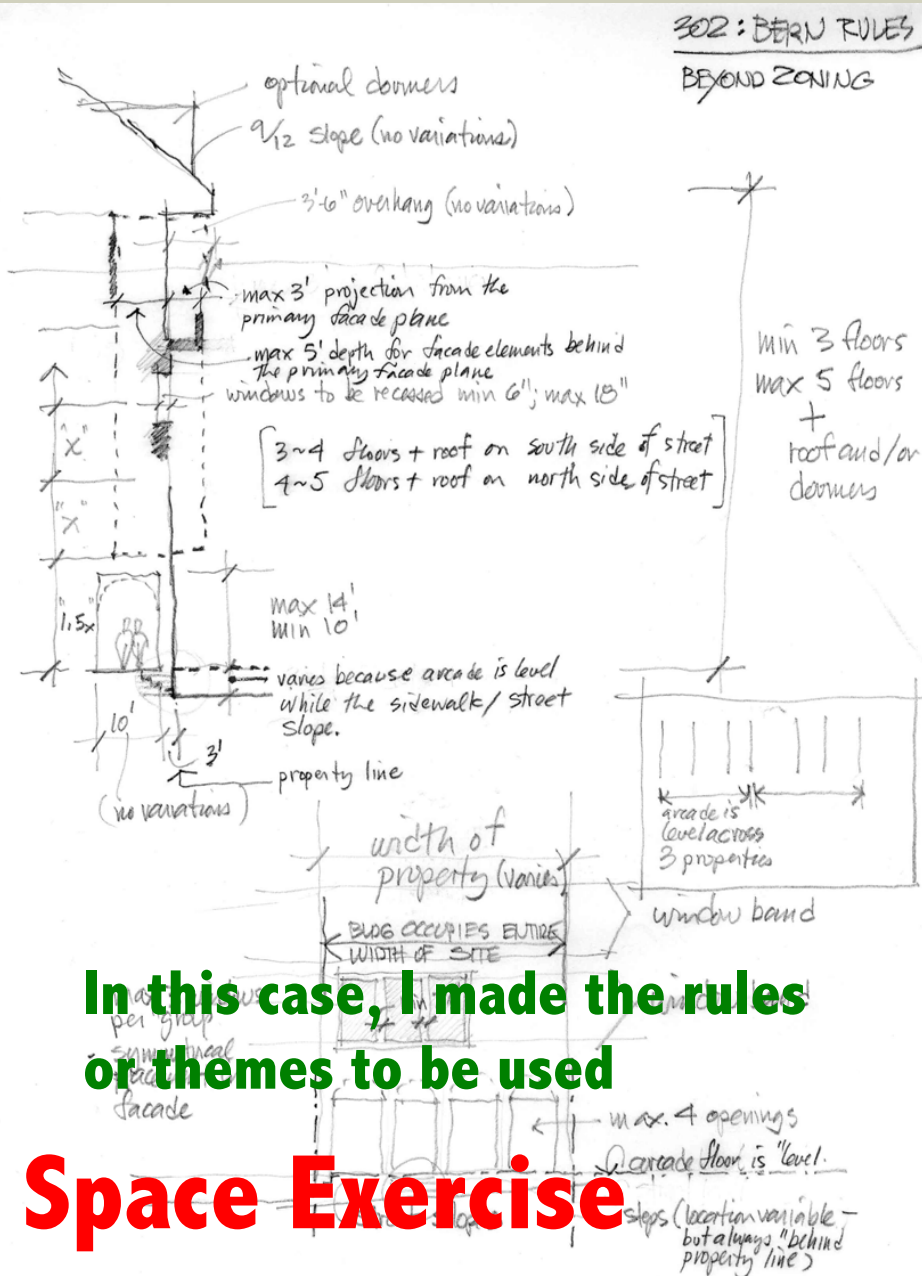 302: BERN RULES
BEYOND ZONING
optional dormers
9/12 slope (no variations)
3'-6" overhang (no variations)
max 3' projection from the
primary facade plane
max 5' depth for facade elements behind
the primary facade plane
windows to be recessed min 6"; max 18"
3~4 floors + roof on south side of street
4~5 floors + roof on north side of street
min 3 floors
max 5 floors
+
roof and/or
dormers
"x"
"x"
"1.5x"
max 14'
min 10'
varies because arcade is level
while the sidewalk/street
slope.
10'
3'
property line
(no variations)
arcade is
level across
3 properties
width of
property (varies)
window band
BLDG OCCUPIES ENTIRE
WIDTH OF SITE
In this case, I made the rules
or themes to be used
per group
symmetrical
facade
max. 4 openings
arcade floor is "level.
Space Exercise
steps (location variable –
but always "behind
property line)